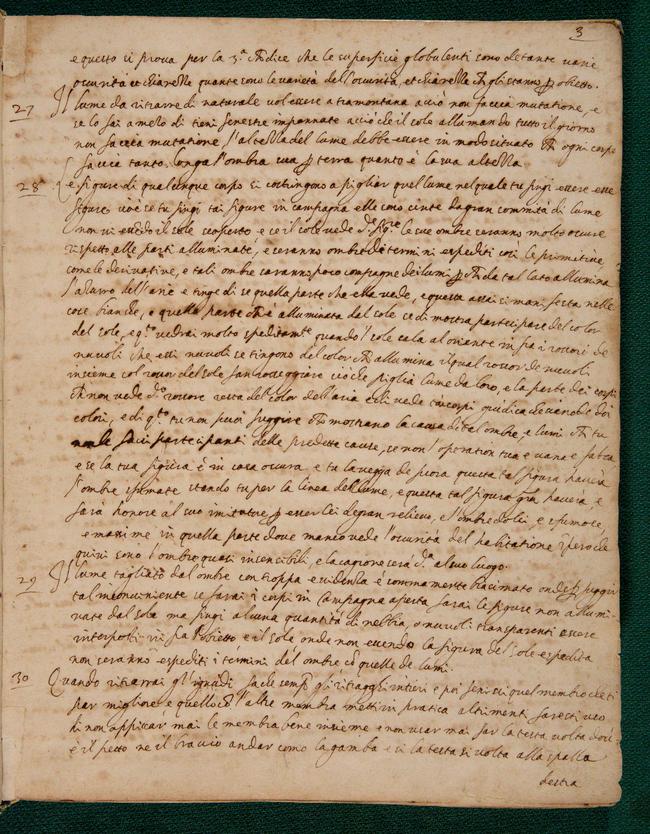 3
e questo si prova per la 3.ª che dice che le superficie globulenti sono de tante varie
oscurità et chiarezze quante sono le varietà dell'oscurità, et chiarezze che gli stanno per obietto.
27 Il lume da ritrarre di naturale vol essere a tramontana acciò non faccia mutatione, e
se lo fai a mezo dì tieni fenestre impannate acciò che il sole alluminando tutto il giorno
non faccia mutatione, l'altezza del lume debbe essere in modo situato che ogni corpo
faccia tanto longa l'ombra sua per terra quanto è la sua altezza
28 Le figure di qualunque corpo si costringono a pigliar quel lume nel quale tu fingi essere esse
figure, cioè se tu fingi tai figure in campagna elle sono cinte da gran sommità di lume
non vi essendo il sole scoperto e se il sole vede d.e fig.re le sue ombre seranno molto oscure
rispetto alle parti alluminate, e seranno ombre de termini espediti così le primitive
come le derivative, e tali ombre saranno poco compagne de lumi perche da tal lato allumina
l'azurro dell'arie e tinge di se quella parte che ella vede, e questo assai si manifesta nelle
cose bianche, e quella parte che è alluminata dal sole se di mostra participare del color
del sole, e q.o vedrai molto speditam.te quando 'l sole cala al oriente infra i rossori de
nuvoli che essi nuvoli se tingono del color che allumina il qual rossor de nuvoli
insieme col rossor del sole fan rosseggiare ciò che piglia lume da loro, e la parte dei corpi
che non vede d.o rossore resta del color dell'aria e chi vede tai corpi giudica che siano de doi
colori, e di q.o tu non puoi fuggire che mostrano la causa di tal ombre, e lumi che tu
non le facci participanti delle predette cause, se non l'operation tua è vana e falsa
e se la tua figura è in casa oscura, e tu la vegga de fuora questa tal figura haverà
l'ombre sfumate stando tu per la linea del lume, e questa tal figura haverà, e
farà honore al suo imitatore per esser lei de gran relievo, e l'ombre dolci e sfumose,
e massime in quella parte dove manco vede l'oscurità del habitatione imperoche
quivi sono l'ombre quasi insensibili, e la cagione serà d.a al suo luogo.
29 Il lume tagliato dal ombre con troppa evidenza è sommamente biasimato onde per fuggir
tal inconveniente se farai i corpi in campagna aperta farai le figure non allumi-
nate dal sole ma fingi alcuna quantità di nebbia, o nuvoli transparenti essere
interposti infra l'obietto e il sole onde non essendo la figura del sole espedita
non seranno espediti i termini del ombre con quelle de lumi.
30 Quando ritrarrai gl'ignudi fa che semp.e gli ritragghi intieri e poi finisci quel membro che ti
par migliore e quello con l'altre membra metti in pratica altrimenti faresti uso
di non appiccar mai le membra bene insieme e non usar mai far la testa volta dov'
è il petto ne il braccio andar como la gamba e se la testa si volta alla spalla
destra